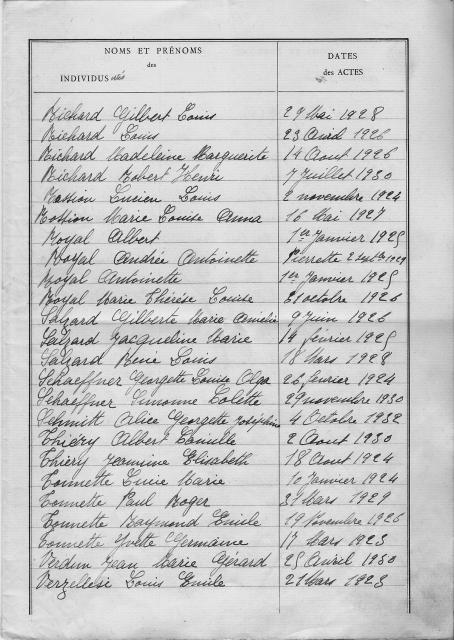 NOMS ET PRÉNOMS
des
INDIVIDUS nés
DATES
des ACTES
Richard Gilbert Louis 29 Mai 1928
Richard Louis 23 Avril 1926
Richard Madeleine Marguerite 14 Aout 1926
Richard Robert Henri 7 Juillet 1930
Rossion Lucien Louis 2 novembre 1924
Rossion Marie Louise Anna 16 Mai 1927
Royal Albert 1er Janvier 1925
Royal Andrée Antoinette Pierrette 2 Septbre 1929
Royal Antoinette 1er Janvier 1925
Royal Marie Thérèse Louise octobre 1926
Salzard Gilberte Marie Amélie 9 Juin 1926
Salzard Jacqueline Marie 14 février 1925
Salzard René Louis 18 Mars 1928
Schaeffner Georgette Louise Olga 26 février 1924
Schaeffner Simonne Colette 29 novembre 1930
Schmitt Alice Georgette Joséphine 4 Octobre 1932
Thiéry Albert Camille 2 Aout 1930
Thiéry Jeannine Elisabeth 18 Aout 1924
Tonnette Lucie Marie 10 Janvier 1924
Tonnette Paul Roger 21 Mars 1929
Tonnette Raymond Emile 19 Novembre 1926
Tonnette Yvette Germaine 17 Mars 1923
Verdun Jean Marie Gérard 25 Avril 1930
Verzellesi Louis Emile 21 Mars 1923